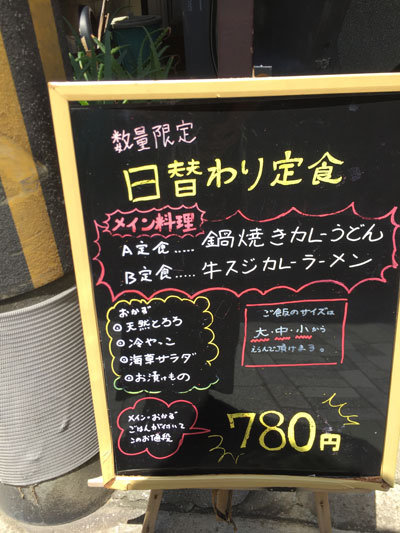 数量限定
日替わり定食
メイン料理
A定食.....鍋焼きカレーうどん
B定食.....牛スジカレーラーメン
おかず
◎天然とろろ
◎冷やっこ
◎海草サラダ
◎お漬けもの
ご飯のサイズは
大・中・小から
えらんで頂けます。
メイン・おかず
ごはんが付いて
このお値段
780円